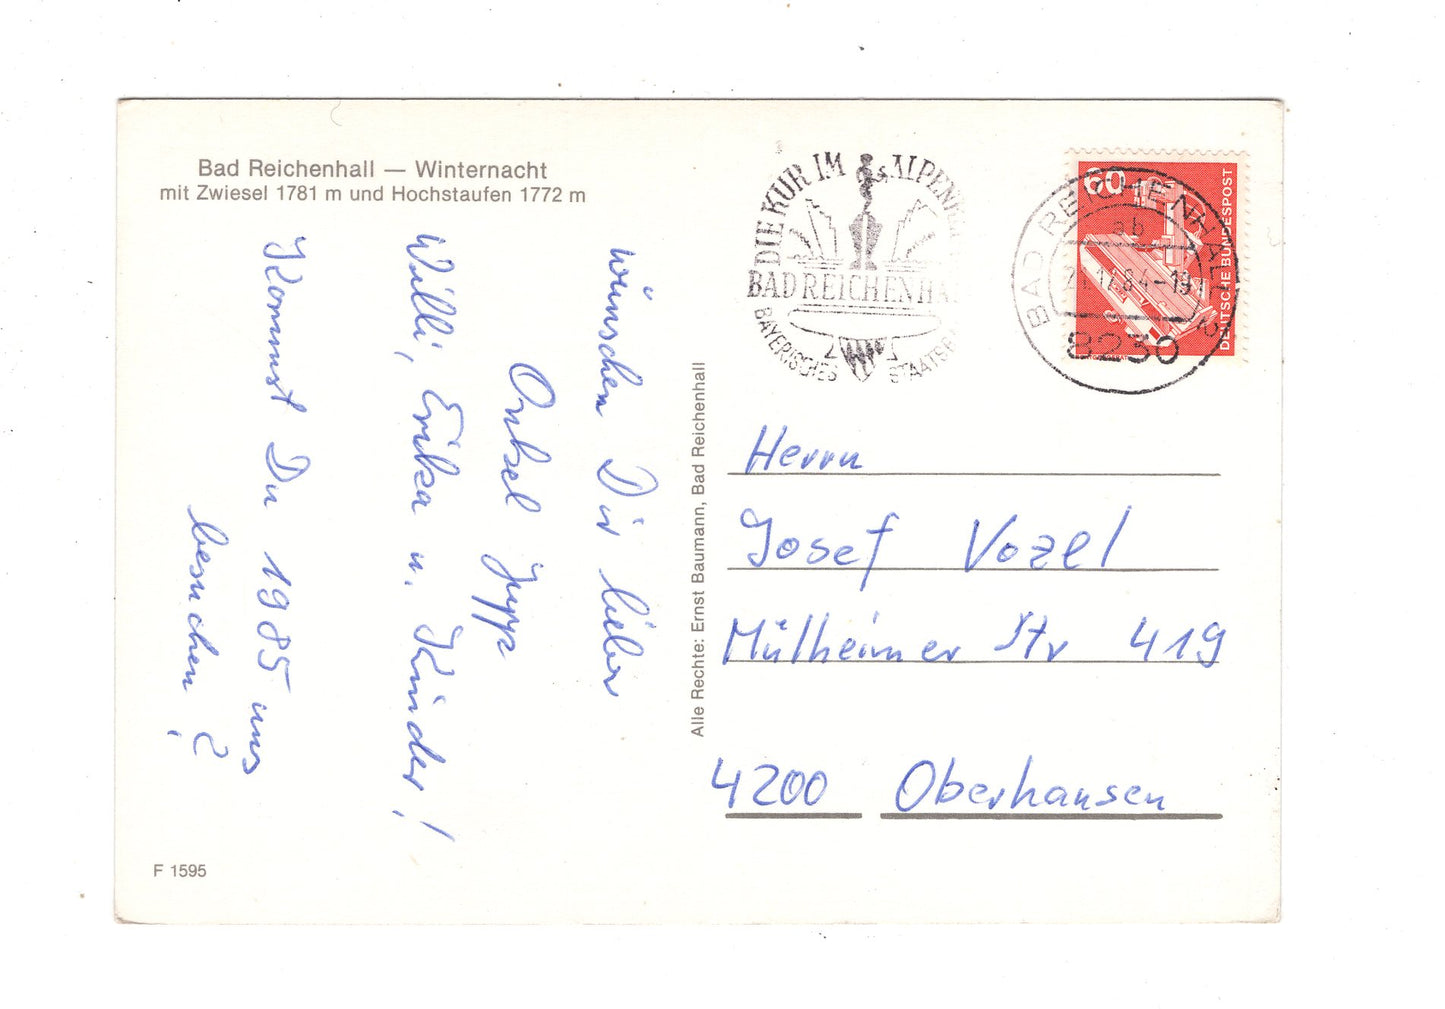 Bad Reichenhall — Winternacht
mit Zwiesel 1781 m und Hochstaufen 1772 m
wünschen Dir lieber
Onkel Jupp
Willi, Erika u. Kinder!
Kommst Du 1985 uns
besuchen?
F 1595
Alle Rechte: Ernst Baumann, Bad Reichenhall
DIE KUR IM
BAD REICHENHA
BAYERISCHES STAATSBA
60
DEUTSCHE BUNDESPOST
BAD REICHENHALL
ab
12.84-19
8230
Herrn
Josef Vozel
Mülheimer Str 419
4200 Oberhausen